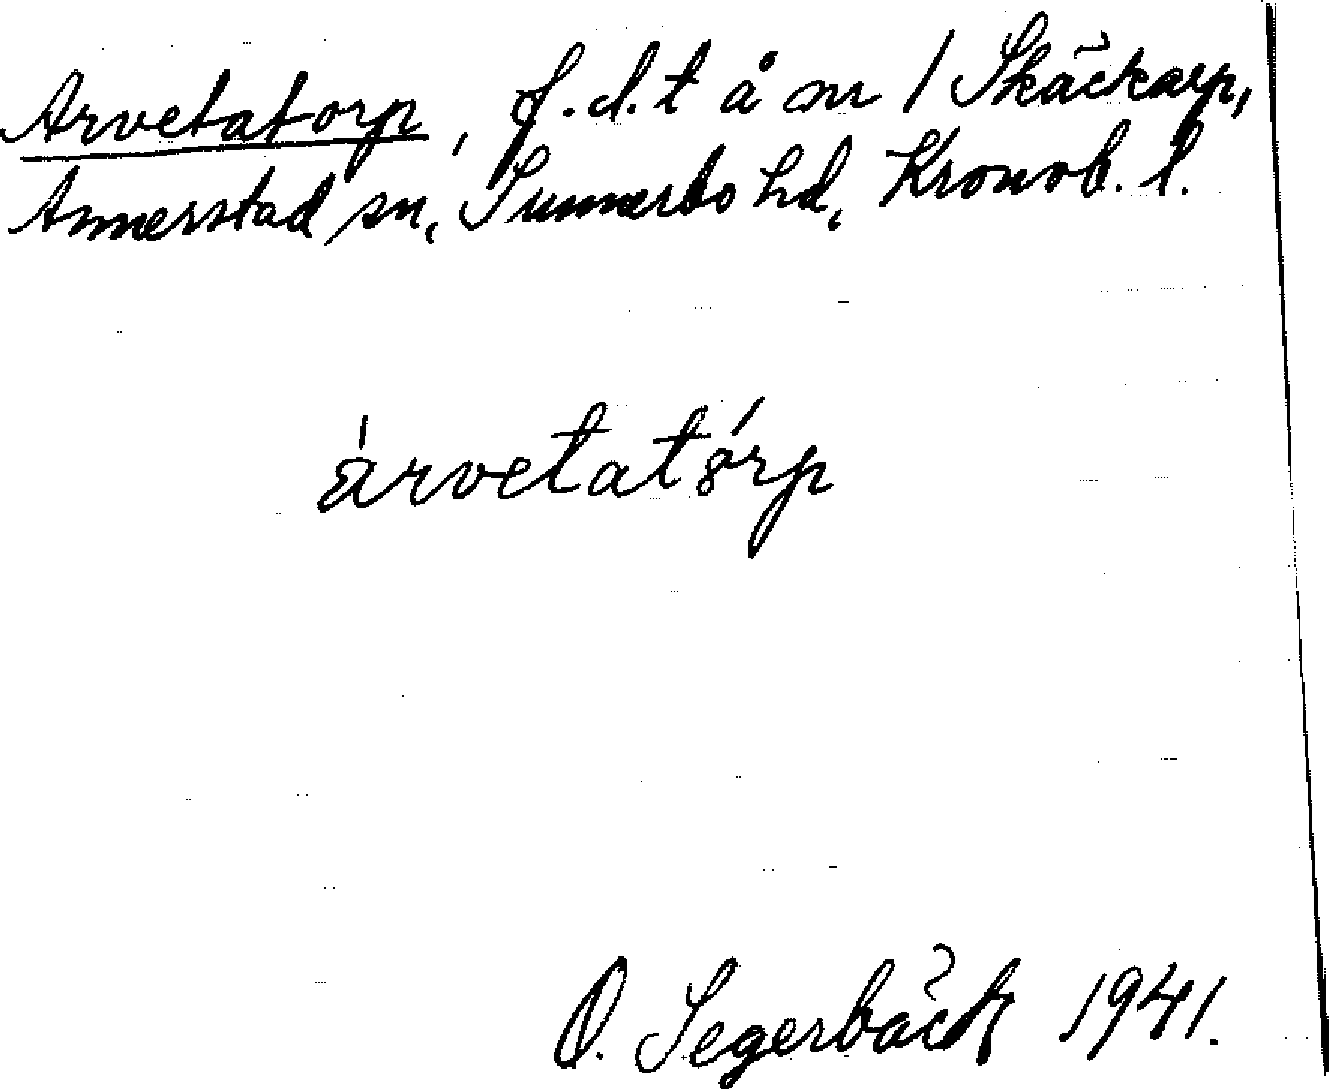 Arvetatorp, f.d.t å nr 1 Skäckarp,
Annerstad sn, Sunnerbo hd, Kronob. l.
árvetatórp
O. Segerbäck 1941.